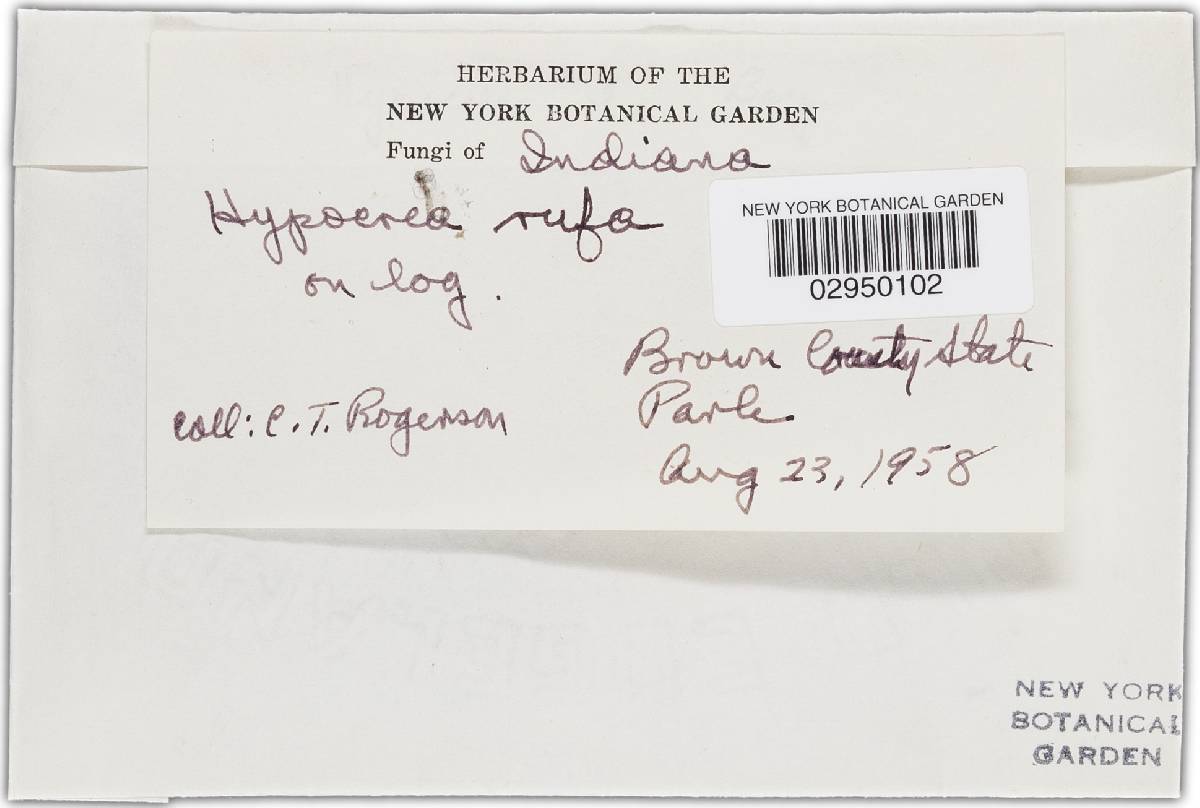 HERBARIUM OF THE
NEW YORK BOTANICAL GARDEN
Fungi of Indiana
Hypocrea rufa
on log.
NEW YORK BOTANICAL GARDEN
02950102
Brown County State
Park
coll: C. T. Rogerson
Aug 23, 1958
NEW YORK
BOTANICAL
GARDEN